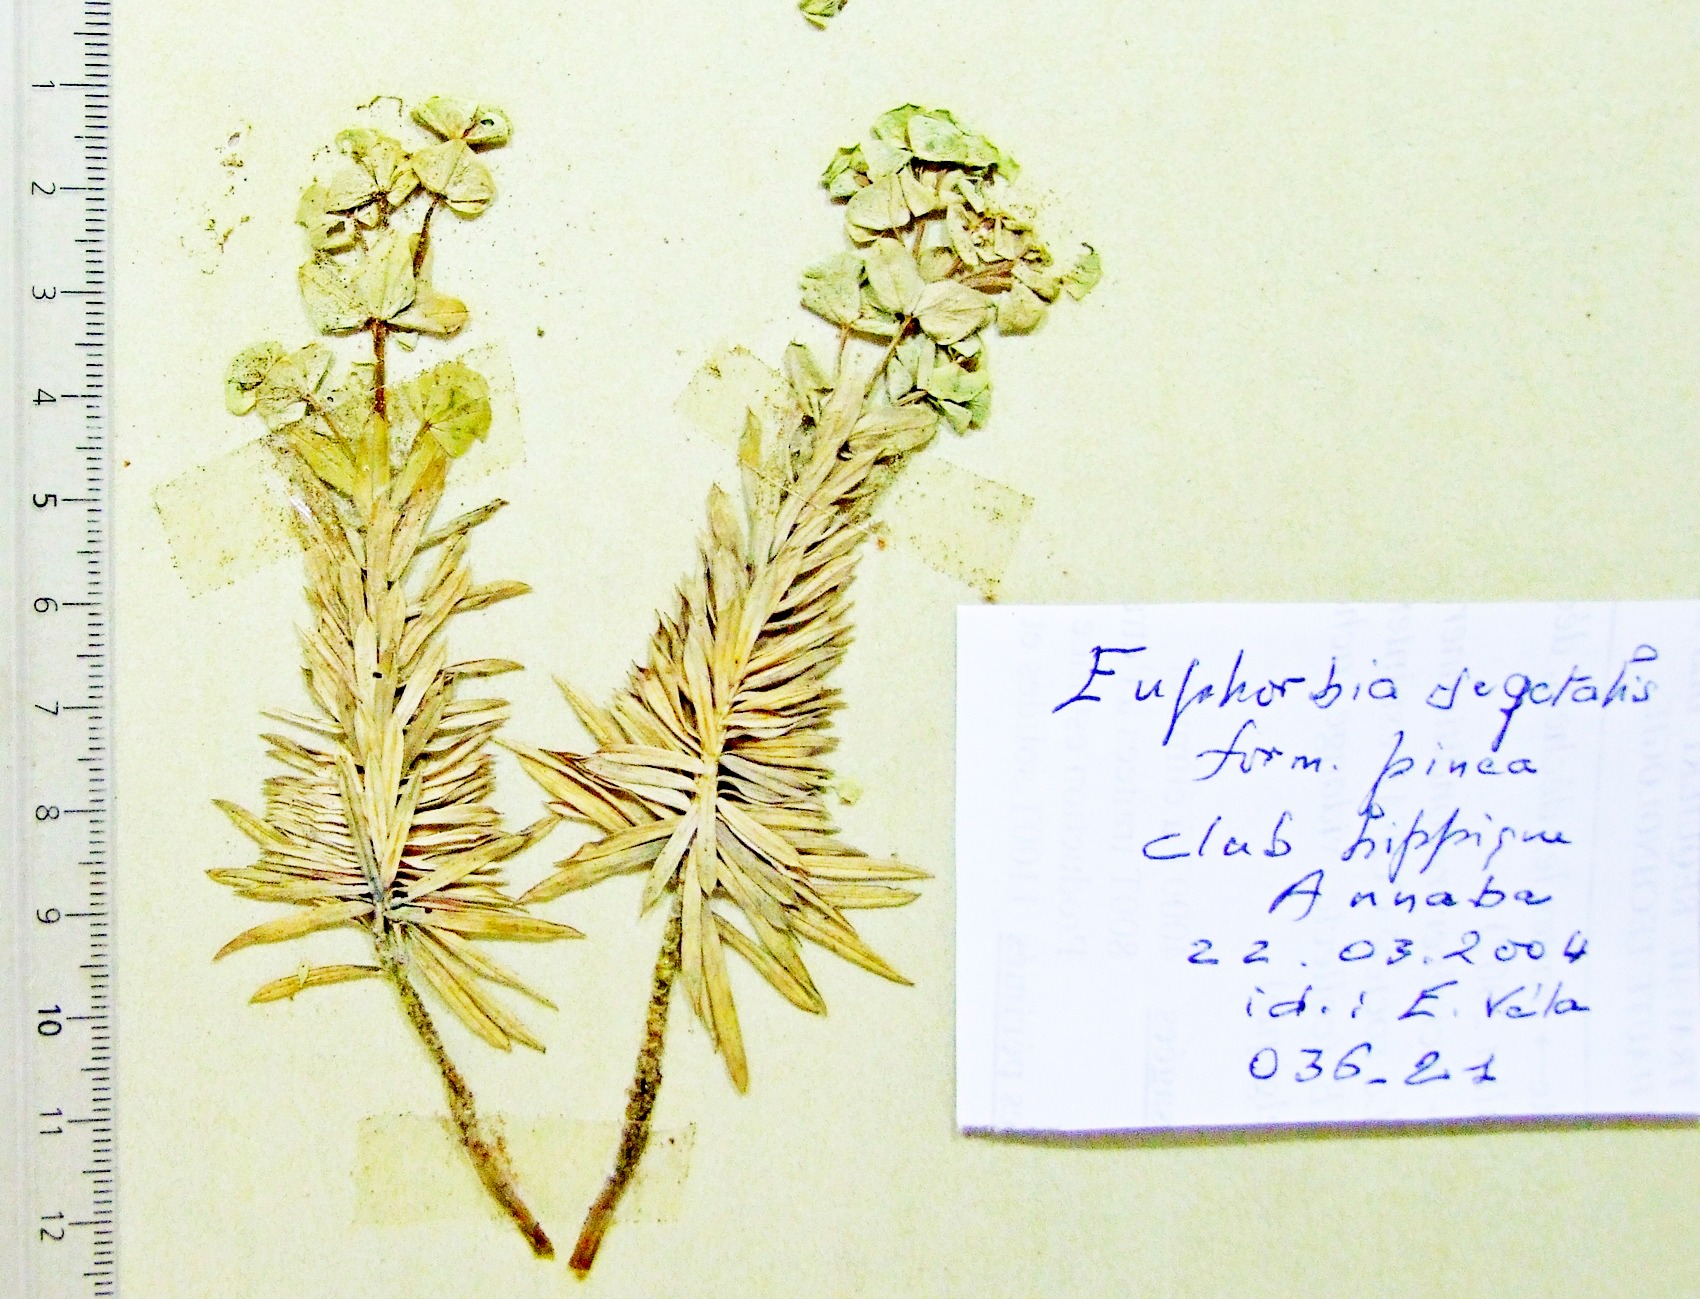 1
2
3
4
5
6
7
8
9
10
11
12
Euphorbia segetalis
form. pinea
club hippique
Annaba
22.03.2004
id.: E. Véla
036_21